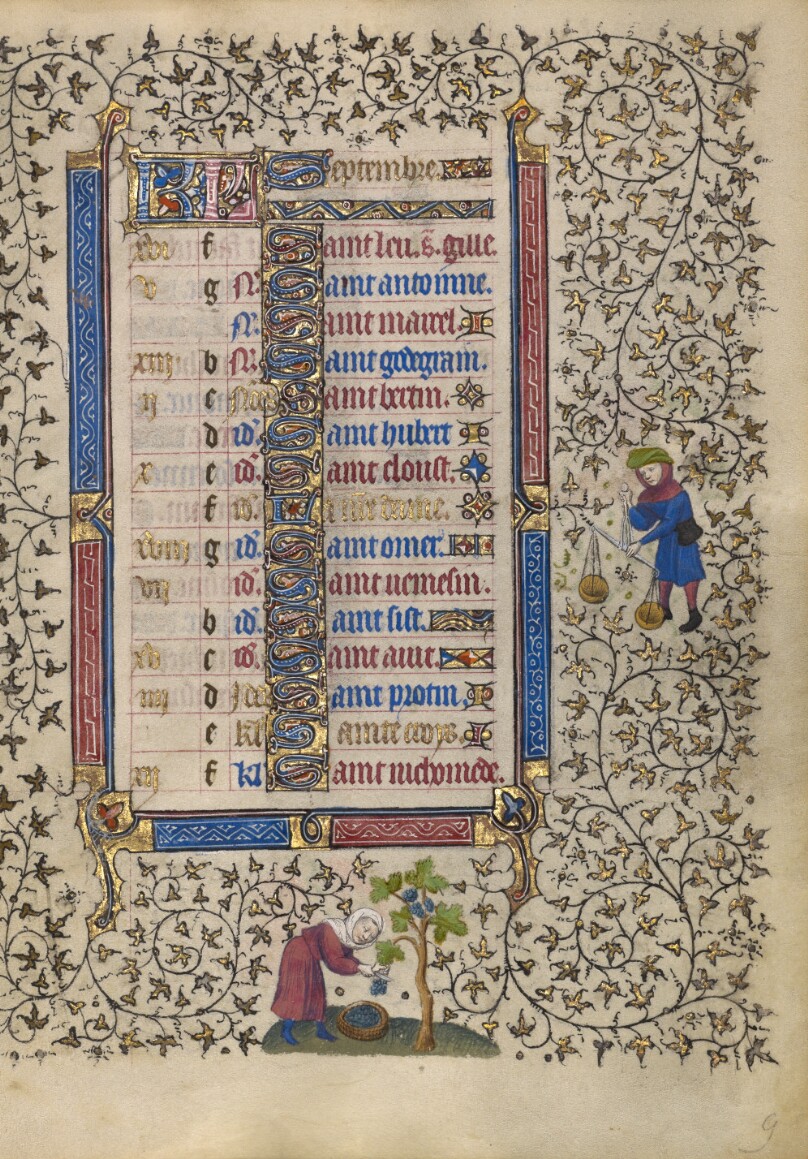 KL Septembre.
xvi f Saint leu. s. gille.
v g N. Saint antoinne.
N. Saint marcel.
xiii b N. Saint godegram.
ii c Saint bertin.
d id. Saint hubert
x e id. Saint cloust.
f id. La nře dame.
xviii g id. Saint omer.
vii id. Saint nemesin.
b id. Saint sist.
xv c id. Saint auit.
iiii d Saint protin.
e kl Sainte croys.
xii f kl Saint nichomede.
9